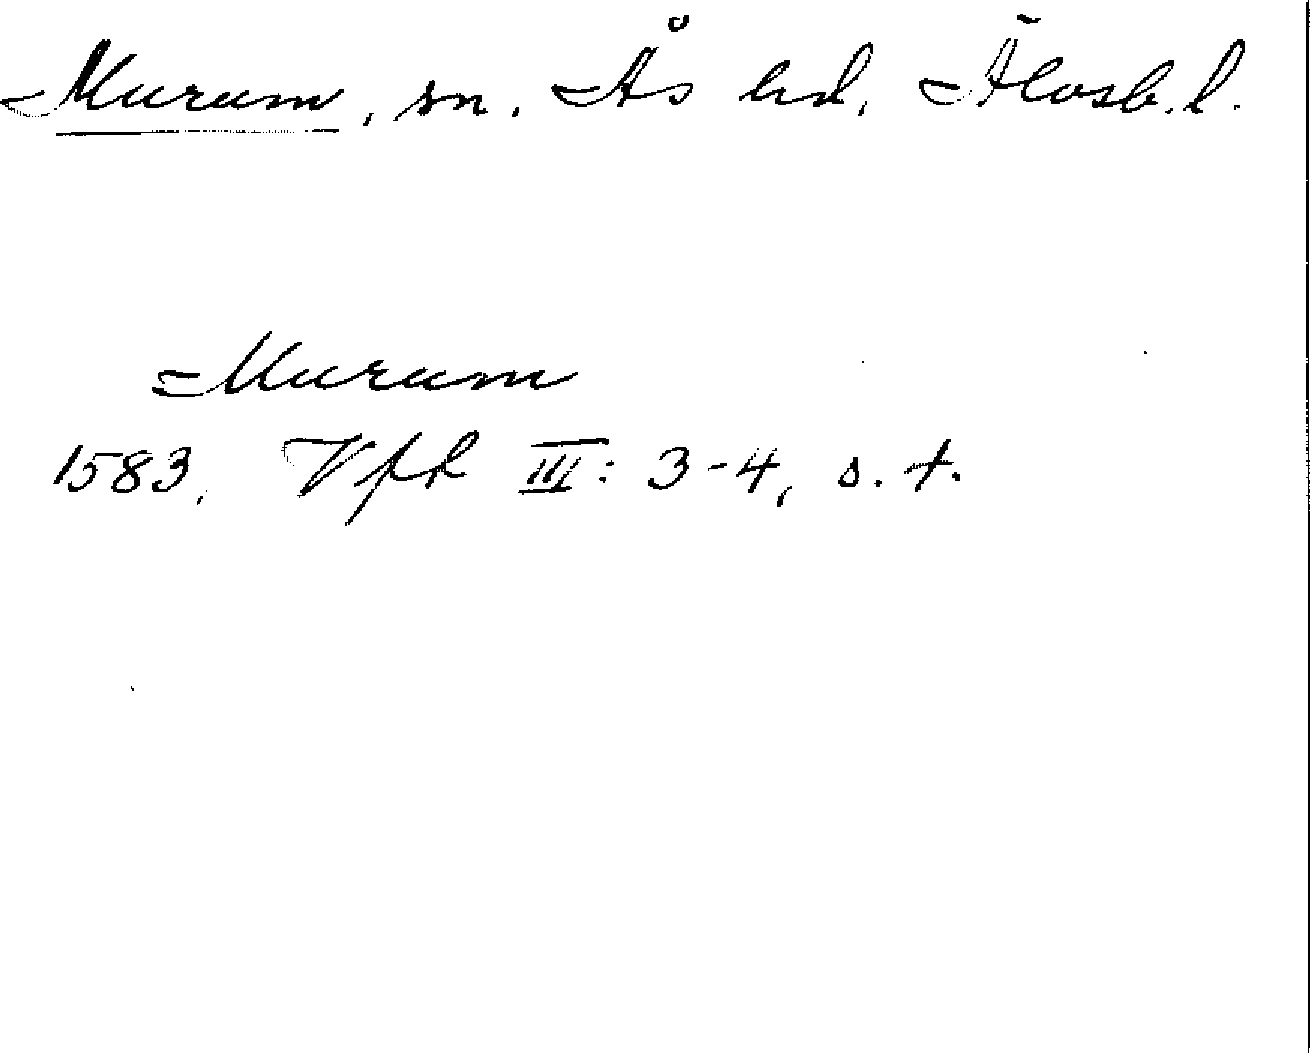 Murum, sn. Ås hd, Älvsb. l.
Murum
1583. Vfk III: 3-4, s. 7.